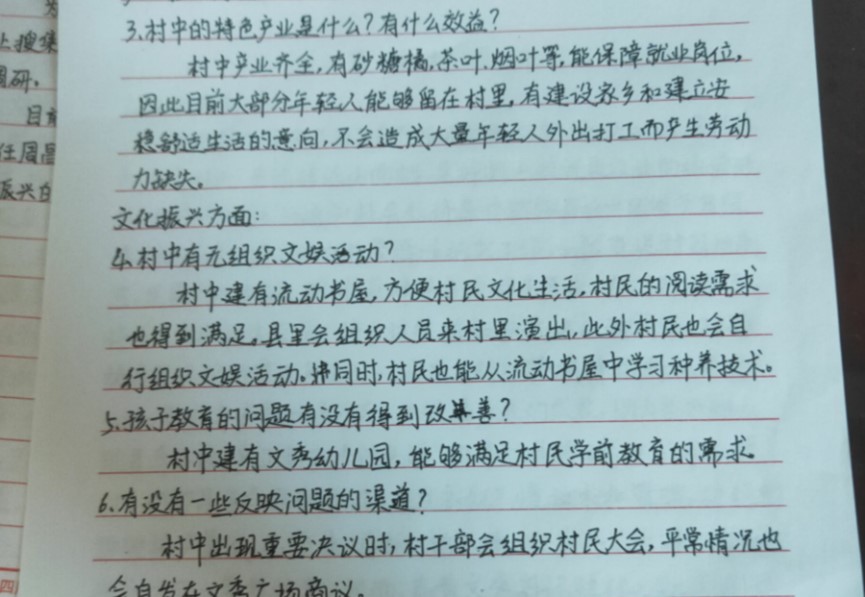 上搜集
调研。
目前
任周昌
振兴的
3.村中的特色产业是什么？有什么效益？
村中产业齐全，有砂糖橘、茶叶、烟叶等，能保障就业岗位，
因此目前大部分年轻人能够留在村里，有建设家乡和建立安
稳舒适生活的意向，不会造成大量年轻人外出打工而产生劳动
力缺失。
文化振兴方面：
4.村中有无组织文娱活动？
村中建有流动书屋，方便村民文化生活，村民的阅读需求
也得到满足。县里会组织人员来村里演出，此外村民也会自
行组织文娱活动。同时，村民也能从流动书屋中学习种养技术。
5.孩子教育的问题有没有得到改善？
村中建有文秀幼儿园，能够满足村民学前教育的需求。
6.有没有一些反映问题的渠道？
村中出现重要决议时，村干部会组织村民大会，平常情况也
会自发在文秀广场商议。
四